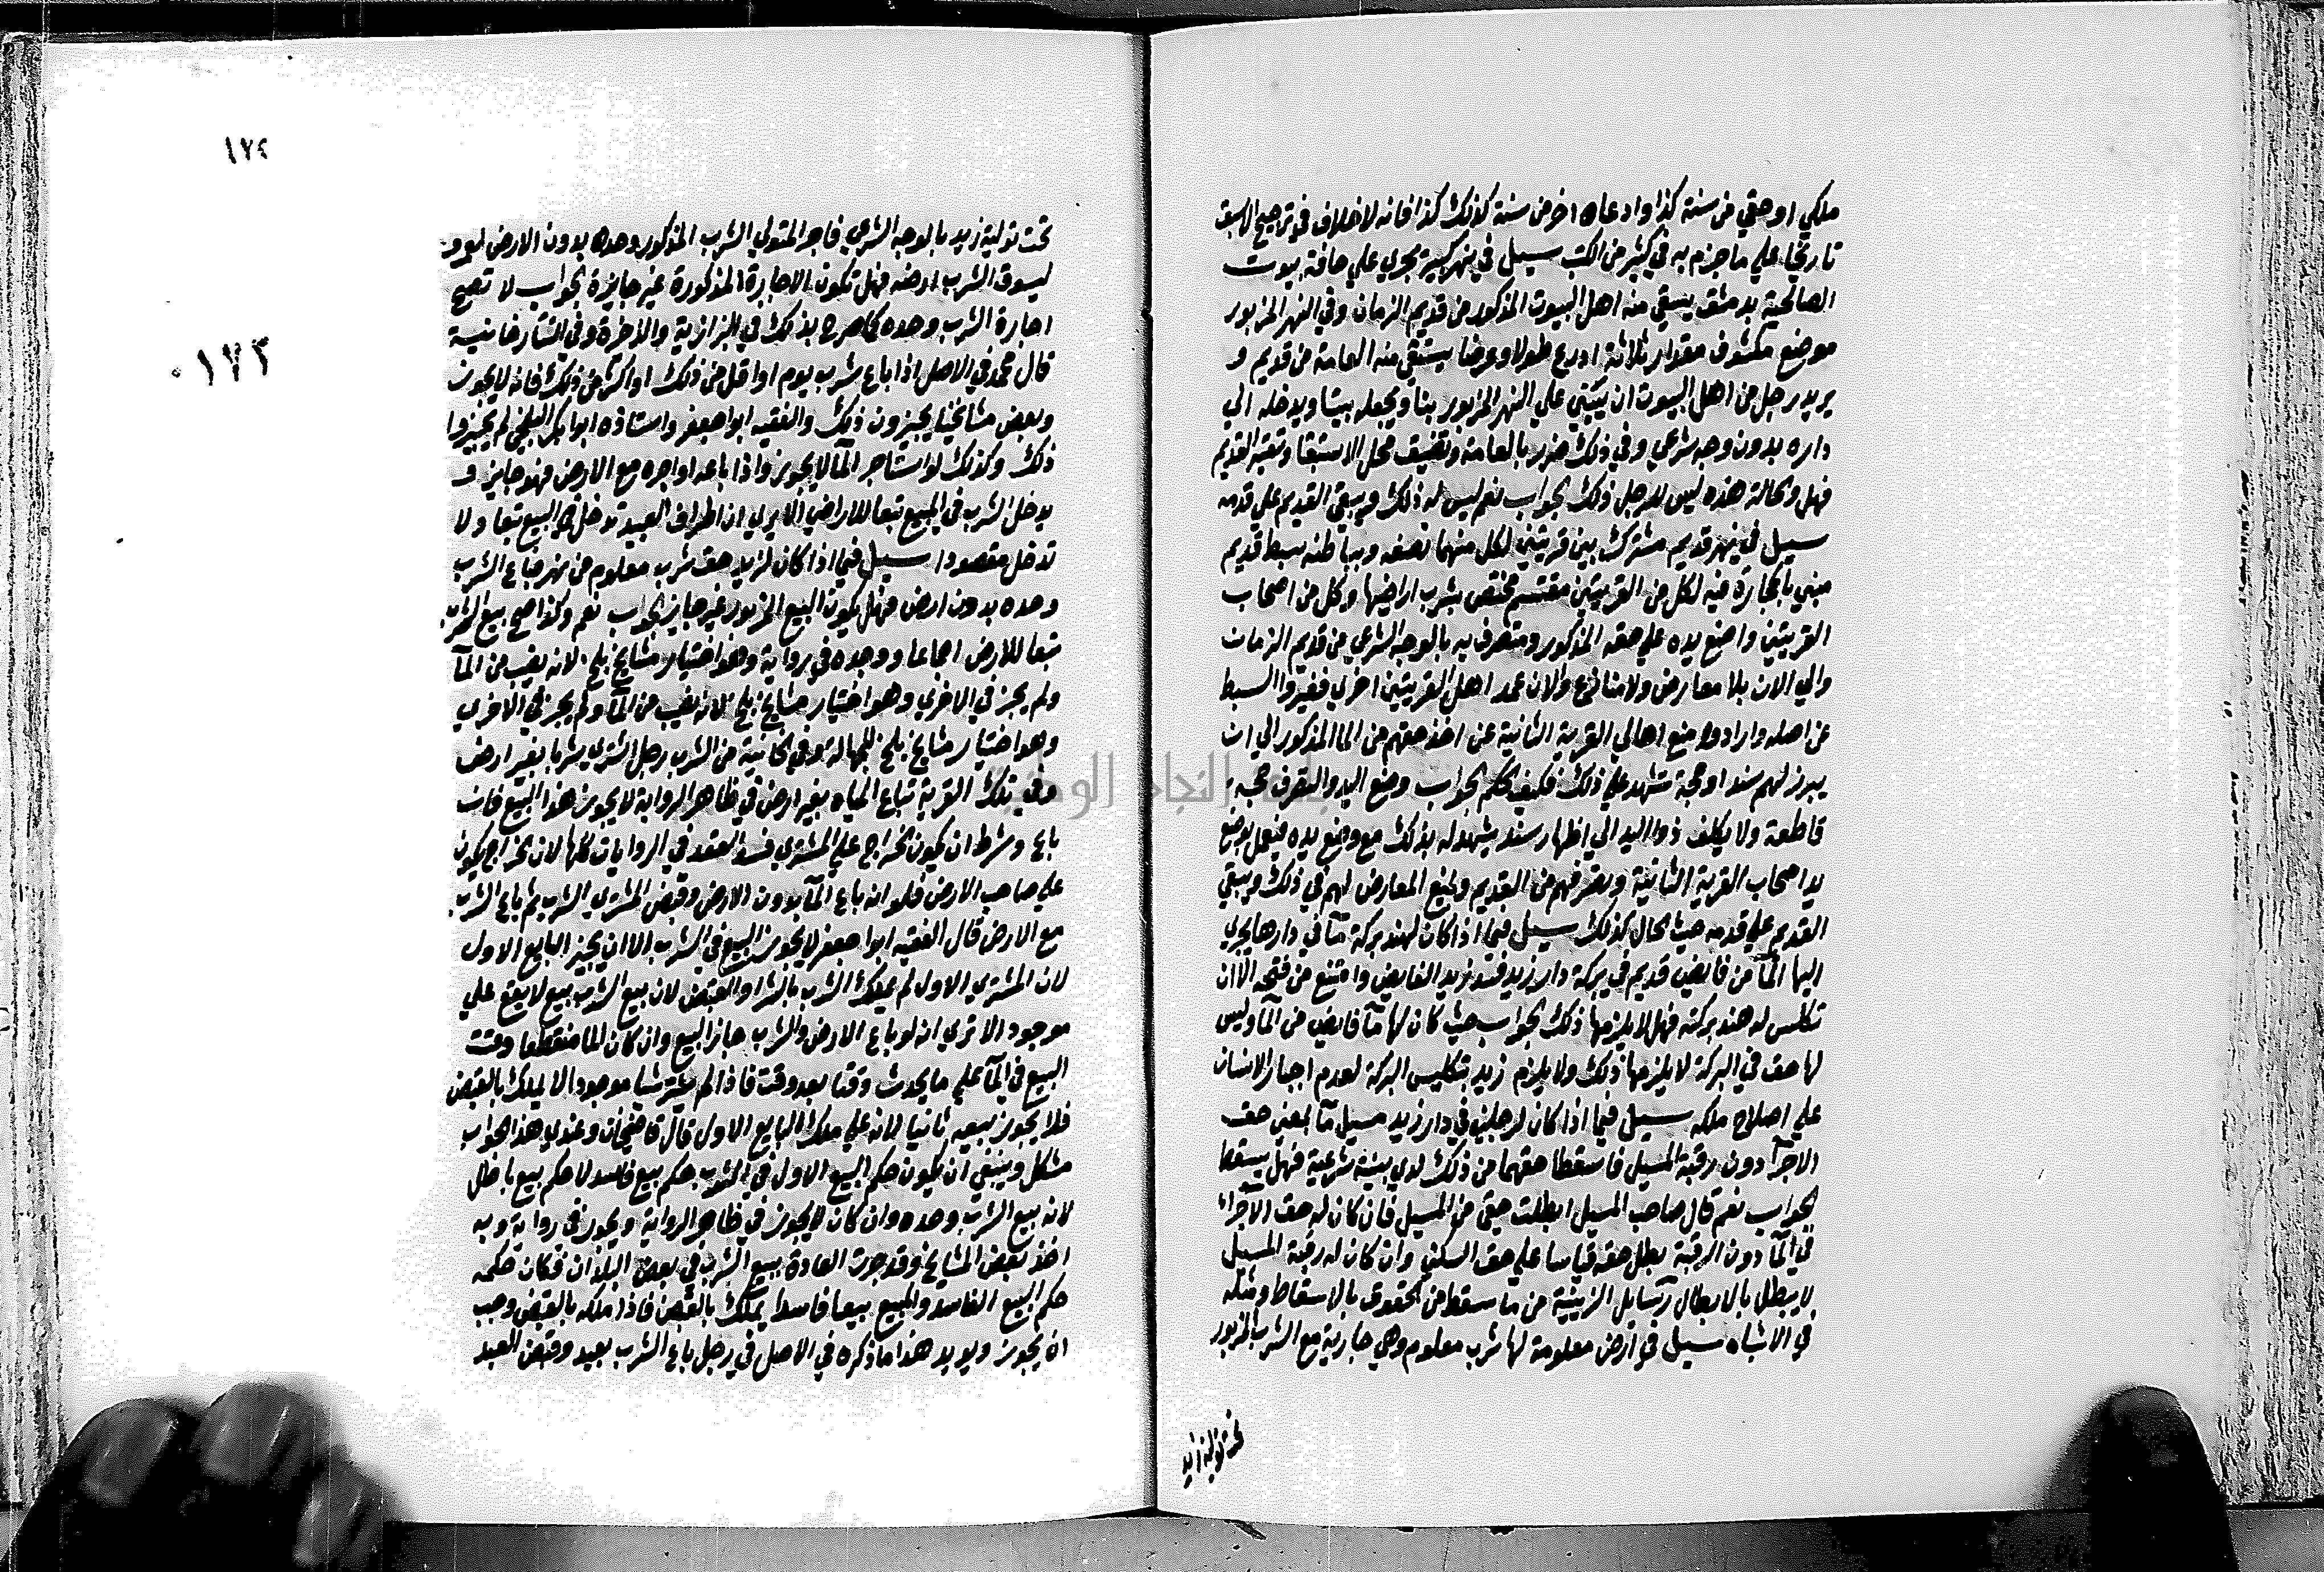 ملكي او حقي من سنة كذا وادعاه اخر من سنة كذلك كذا فانه لا خلاف في ترجيح الاسبق
تاريخا علي ما جزم به في كثير من الكتب سيل في نهر كبير يجري علي حافة بيوت
الصالحية بدمشق يستقي منه اهل البيوت المذكور من قديم الزمان وفي النهر المزبور
موضع مكشوف مقدار ثلاثة ادرع طولا وعرضا يستقي منه العامة من قديم و
يريد رجل من اهل البيوت ان يبتني علي النهر المزبور بنا ويجعله بيتا ويدخله الي
داره بدون وجه شرعي وفي ذلك ضرر بالعامة وتضييق محل الاستقا وتغير القديم
فهل والحالة هذه ليس للرجل ذلك الجواب نعم ليس له ذلك ويبقي القديم علي قدمه
سيل في نهر قديم مشترك بين قريتين لكل منهما نصفه وبباطنه بسط قديم
مبني بالحجارة فيه لكل من القريتين مقتسم مختص بشرب اراضيها وكل من اصحاب
القريتين واضع يده علي حقه المذكور ومتصرف به بالوجه الشرعي من قديم الزمان
والي الان بلا معارض ولا منازع والان عمد اهل القريتين اخري فغيروا البسط
عن اصله وارادوا منع اهالي القرية الثانية عن اخذ حقهم من الما المذكور الي ان
يبرز لهم سند او حجة تشهد علي ذلك فكيف الحكم الجواب وضع اليد والتصرف حجة
قاطعة ولا يكلف ذو اليد الي اظهار سند يشهد له بذلك مع وضع يده فيعمل بوضع
يد اصحاب القرية الثانية وبتصرفهم من القديم ويمنع المعارض لهم في ذلك ويبقي
القديم علي قدمه حيث الحال كذلك سيل فيما اذا كان لهند بركة مآ في دارها يجري
اليها المآ من فايض قديم في بركة دار زيد فسد زيد الفايض وامتنع من فتحه الا ان
تكلس له هند بركته فهل لا يلزمها ذلك الجواب حيث كان لها مآ فايض من المآ وليس
لها حق في البركة لا يلزمها ذلك ولا يلزم زيد بتكليس البركة لعدم اجبار الانسان
علي اصلاح ملكه سيل فيما اذا كان لرجلين في دار زيد مسيل مآ بمعني حق
الاجرآ دون رقبة المسيل فاسقطا حقهما من ذلك لدي بينة شرعية فهل يسقط
الجواب نعم قال صاحب المسيل ابطلت حقي من المسيل فان كان له حق الاجرآ
في المآ دون الرقبة بطل حقه قياسا علي حق السكني وان كان له رقبة المسيل
لا يبطل بالابطال رسايل الزينية من ما سقط من الحقوق بالاسقاط ومثله
في الاشباه سيل في ارض معلومة لها شرب معلوم وهي جارية مع الشرب المزبور
تحت تولية زيد
١٧٤
١٧٣
تحت تولية زيد بالوجه الشرعي فاجر المتولي الشرب المذكور وحده بدون الارض لعمرو
ليسوق الشرب ارضه فهل تكون الاجارة المذكورة غير جايزة الجواب لا تصح
اجارة الشرب وحده كما صرح بذلك في البزازية والذخيرة وفي التتارخانية
قال محمد في الاصل اذا باع شرب يوم او اقل من ذلك او اكثر من ذلك فانه لا يجوز
وبعض مشايخنا يجيزون ذلك والفقيه ابو جعفر واستاذه ابو بكر البلخي لم يجيزوا
ذلك وكذلك لو استاجر المآ لا يجوز واذا باعه او اجره مع الارض فهو جايز و
يدخل الشرب في المبيع تبعا للاراضي الا يري ان اطراف العبيد تدخل في البيع تبعا ولا
تدخل مقصودا سيل فيما اذا كان لزيد حق شرب معلوم من نهر فباع الشرب
وحده بدون ارض فهل يكون البيع المزبور غير جايز الجواب نعم وكذا صح بيع الشرب
تبعا للارض اجماعا ووحده في رواية وهو اختيار مشايخ بلخ لانه نصيب من المآ
ولم يجز في الاخري وهو اختيار مشايخ بلخ لانه نصيب من المآ ولم يجز في الاخري
وهو اختيار مشايخ بلخ للجهالة وفي الخانية من الشرب رجل اشتري شربا بغير ارض
وفي تلك القرية تباع المياه بغير ارض في ظاهر الرواية لا يجوز هذا البيع فان
باع وشرط ان يكون الخراج علي المشتري فسد العقد في الروايات كلها لان الخراج يكون
علي صاحب الارض فلو انه باع المآ بدون الارض وقبض المشتري الشرب ثم باع الشرب
مع الارض قال الفقيه ابو جعفر لا يجوز البيع في الشرب الا ان يجيز البايع الاول
لان المشتري الاول لم يملك الشرب بالشرا والقبض لان بيع الشرب بيع لا يقع علي
موجود الا تري انه لو باع الارض والشرب جاز البيع وان كان الما منقطعا وقت
البيع في المآ علي ما يحدث وقتا بعد وقت فاذا لم يشتر شيا موجودا لا يملك بالقبض
فلا يجوز بيعه ثانيا لانه علي ملك البايع الاول قال قاضيخان وعندي هذا الجواب
مشكل وينبغي ان يكون حكم البيع الاول في الشرب حكم بيع فاسد لا حكم بيع باطل
لانه بيع الشرب وحده وان كان لا يجوز في ظاهر الرواية ويجوز في رواية وبه
اخذ بعض المشايخ وقد جرت العادة ببيع الشرب في بعض البلدان فكان حكمه
حكم البيع الفاسد والمبيع بيعا فاسدا يملك بالقبض فاذا ملكه بالقبض وجب
ان يجوز ويويد هذا ما ذكره في الاصل في رجل باع الشرب بعبد وقبض العبد